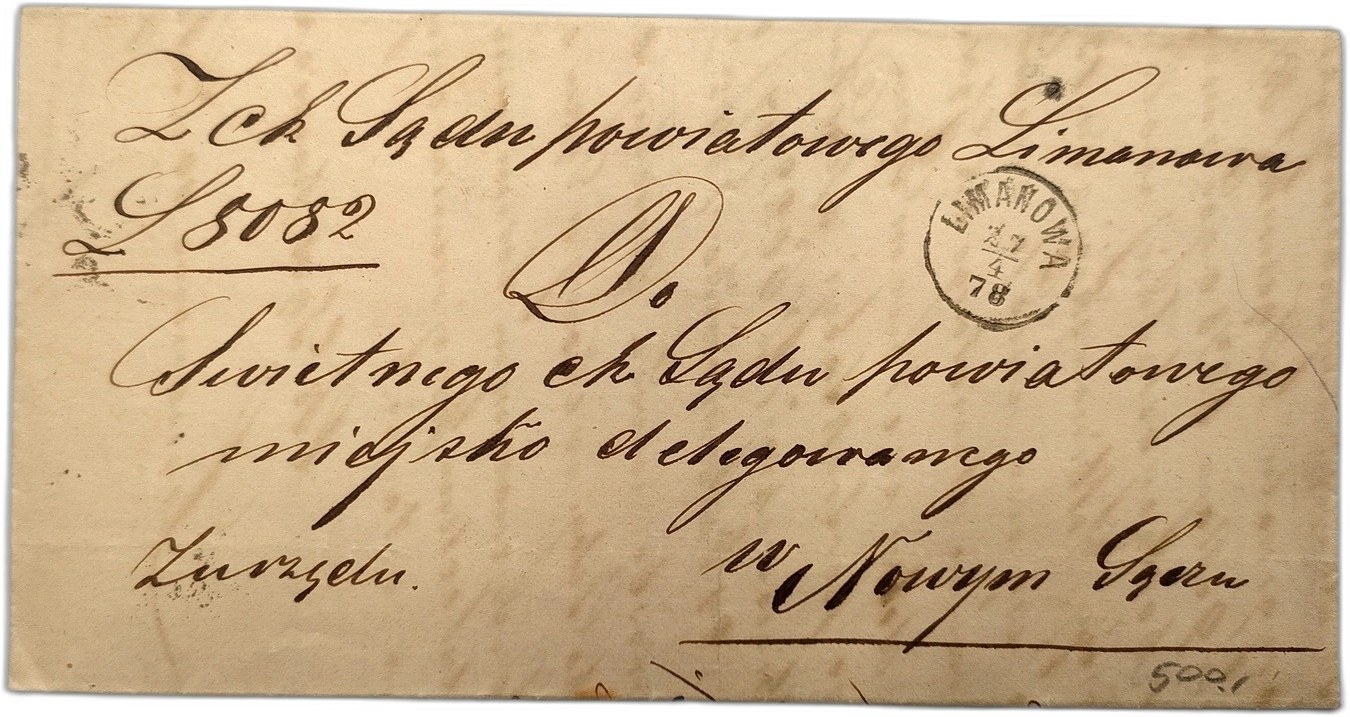 Z ck Sądu powiatowego Limanowa
L 8082
LIMANOWA
27
4
78
Do.
Swietnego ck Sądu powiatowego
miejsko delegowanego
w Nowym Sączu
Z urzędu.
500.